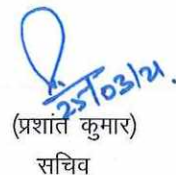 25/03/21.
(प्रशांत कुमार)
सचिव